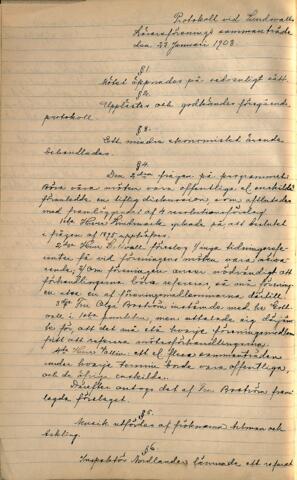 Protokoll vid Lindwalls
Lärareförenings sammanträde
den 23 Januari 1903.
§1.
Mötet öppnades på vedvanligt sätt.
§2.
Upplästes och godkändes föregående
protokoll.
§3.
Ett mindre ekonomiskt ärende
behandlades.
§4.
Den 2dra frågan på programmet
Böra våra möten vara offentliga, el. enskilda
föranledde en liflig diskussion, som afslutades
med framläggandet af 4 resolutionsförslag
1sta Herr Lindmark yrkade på att beslutet
i frågan af 1895 upplästes.
2dra Herr E. wall. föreslog Inga tidningsrefe-
renter få vid föreningens möten vara närva
rande, 2/ Om föreningen anser nödvändigt att
förhandlingarna böra refereras, så må förenin-
gen utse en af föreningsmedlemmarna därtill.
3dje Frn Olga Boström instämde med hr
wall i 1sta punkten, men uttalade sig
för, att det må stå hvarje föreningsmedlem
fritt att referera mötesförhandlingarna.
4de Herr Wallin: ett el. flera sammanträden
under hvarje termin borde vara offentliga,
och de öfriga enskilda.
Därefter antogs det af Frn Boström fram
lagda förslaget.
§5.
Musik utfördes af fröknarna och
§6.
Inspektör Nordlander lämnade ett referat